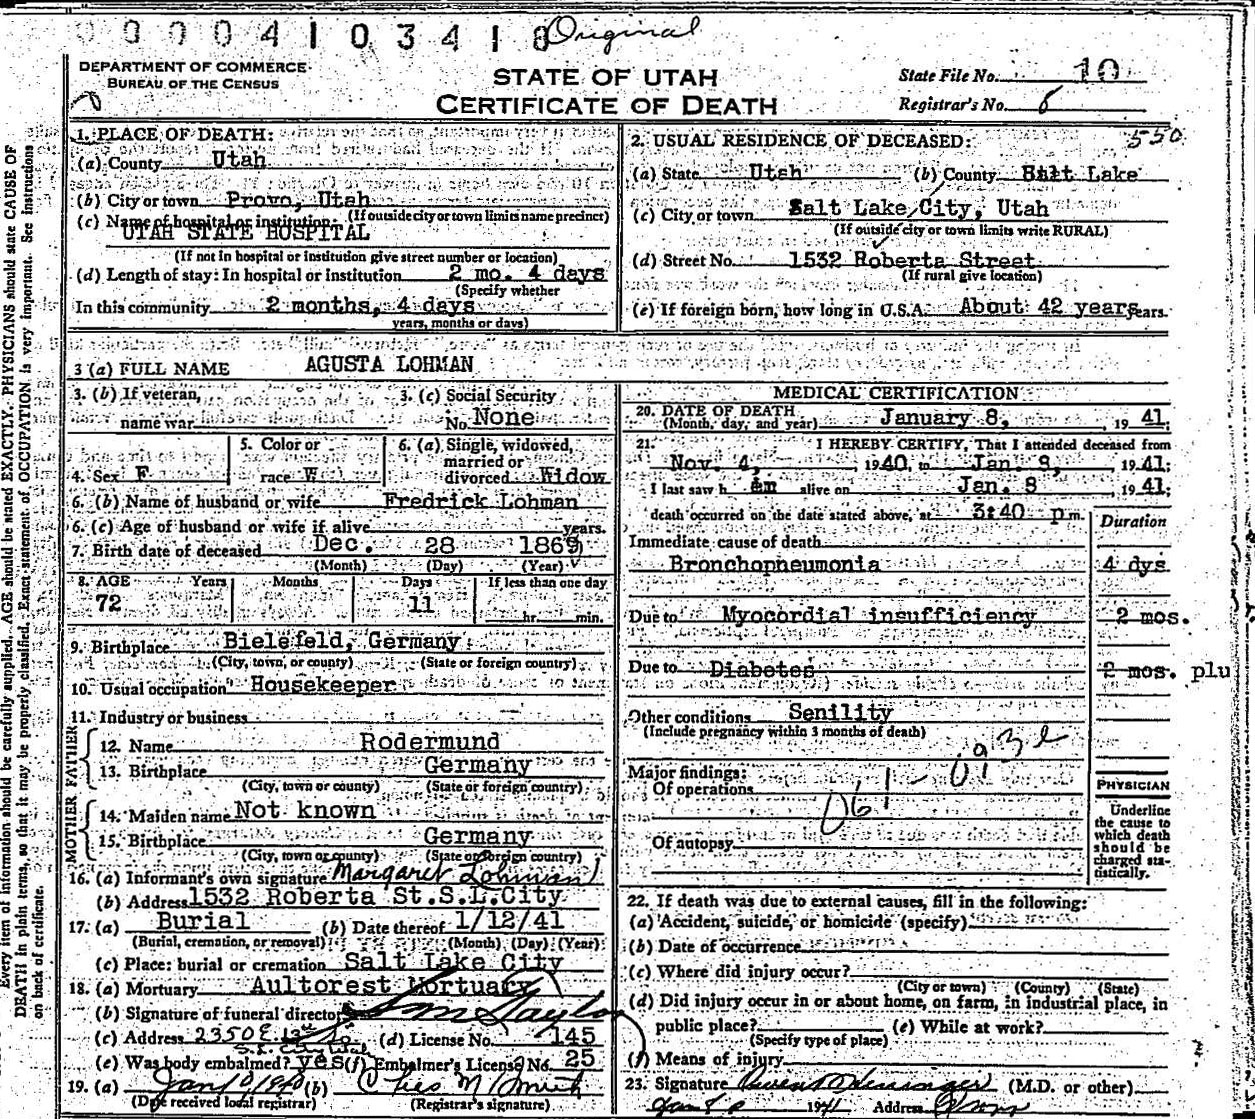 0000410341 8 Original
DEPARTMENT OF COMMERCE
BUREAU OF THE CENSUS
STATE OF UTAH
CERTIFICATE OF DEATH
State File No. 10
Registrar's No. 6
550
Every item of information should be carefully supplied. AGE should be stated EXACTLY. PHYSICIANS should state CAUSE OF
DEATH in plain terms, so that it may be properly classified. Exact statement of OCCUPATION is very important. See instructions
on back of certificate.
1. PLACE OF DEATH:
(a) County Utah
(b) City or town Provo, Utah
(If outside city or town limits name precinct)
(c) Name of hospital or institution:
UTAH STATE HOSPITAL
(If not in hospital or institution give street number or location)
(d) Length of stay: In hospital or institution 2 mo. 4 days
(Specify whether
In this community 2 months, 4 days
years, months or days)
2. USUAL RESIDENCE OF DECEASED:
(a) State Utah (b) County Salt Lake
(c) City or town Salt Lake City, Utah
(If outside city or town limits write RURAL)
(d) Street No. 1532 Roberta Street
(If rural give location)
(e) If foreign born, how long in U.S.A. About 42 years years.
3 (a) FULL NAME AGUSTA LOHMAN
3. (b) If veteran,
name war
3. (c) Social Security
No. None
4. Sex F
5. Color or
race W
6. (a) Single, widowed,
married or
divorced Widow
6. (b) Name of husband or wife Fredrick Lohman
6. (c) Age of husband or wife if alive years.
7. Birth date of deceased Dec. 28 1869
(Month) (Day) (Year)
8. AGE Years Months Days If less than one day
72 11 hr. min.
9. Birthplace Bielefeld, Germany
(City, town, or county) (State or foreign country)
10. Usual occupation Housekeeper
11. Industry or business
FATHER
12. Name Rodermund
13. Birthplace Germany
(City, town or county) (State or foreign country)
MOTHER
14. Maiden name Not known
15. Birthplace Germany
(City, town or county) (State or foreign country)
16. (a) Informant's own signature Margaret Lohman
(b) Address 1532 Roberta St. S.L.City
17. (a) Burial (b) Date thereof 1/12/41
(Burial, cremation, or removal) (Month) (Day) (Year)
(c) Place: burial or cremation Salt Lake City
18. (a) Mortuary Aultorest Mortuary
(b) Signature of funeral director Taylor
(c) Address 2350 E. (d) License No. 145
(e) Was body embalmed? yes (f) Embalmer's License No. 25
19. (a) Jan (b)
(Date received local registrar) (Registrar's signature)
MEDICAL CERTIFICATION
20. DATE OF DEATH
(Month, day, and year) January 8, 19 41;
21. I HEREBY CERTIFY, That I attended deceased from
Nov. 4, 1940, to Jan. 8, 1941;
I last saw h alive on Jan. 8, 1941;
death occurred on the date stated above, at 3:40 p m.
Duration
Immediate cause of death
Bronchopneumonia 4 dys
Due to Myocordial insufficiency 2 mos.
Due to Diabetes 2 mos. plu
Other conditions Senility
(Include pregnancy within 3 months of death)
Major findings:
Of operations
061 - 093 e
Of autopsy
PHYSICIAN
Underline
the cause to
which death
should be
charged sta-
tistically.
22. If death was due to external causes, fill in the following:
(a) Accident, suicide, or homicide (specify)
(b) Date of occurrence
(c) Where did injury occur?
(City or town) (County) (State)
(d) Did injury occur in or about home, on farm, in industrial place, in
public place? (e) While at work?
(Specify type of place)
(f) Means of injury
23. Signature (M.D. or other)
1941 Address Provo